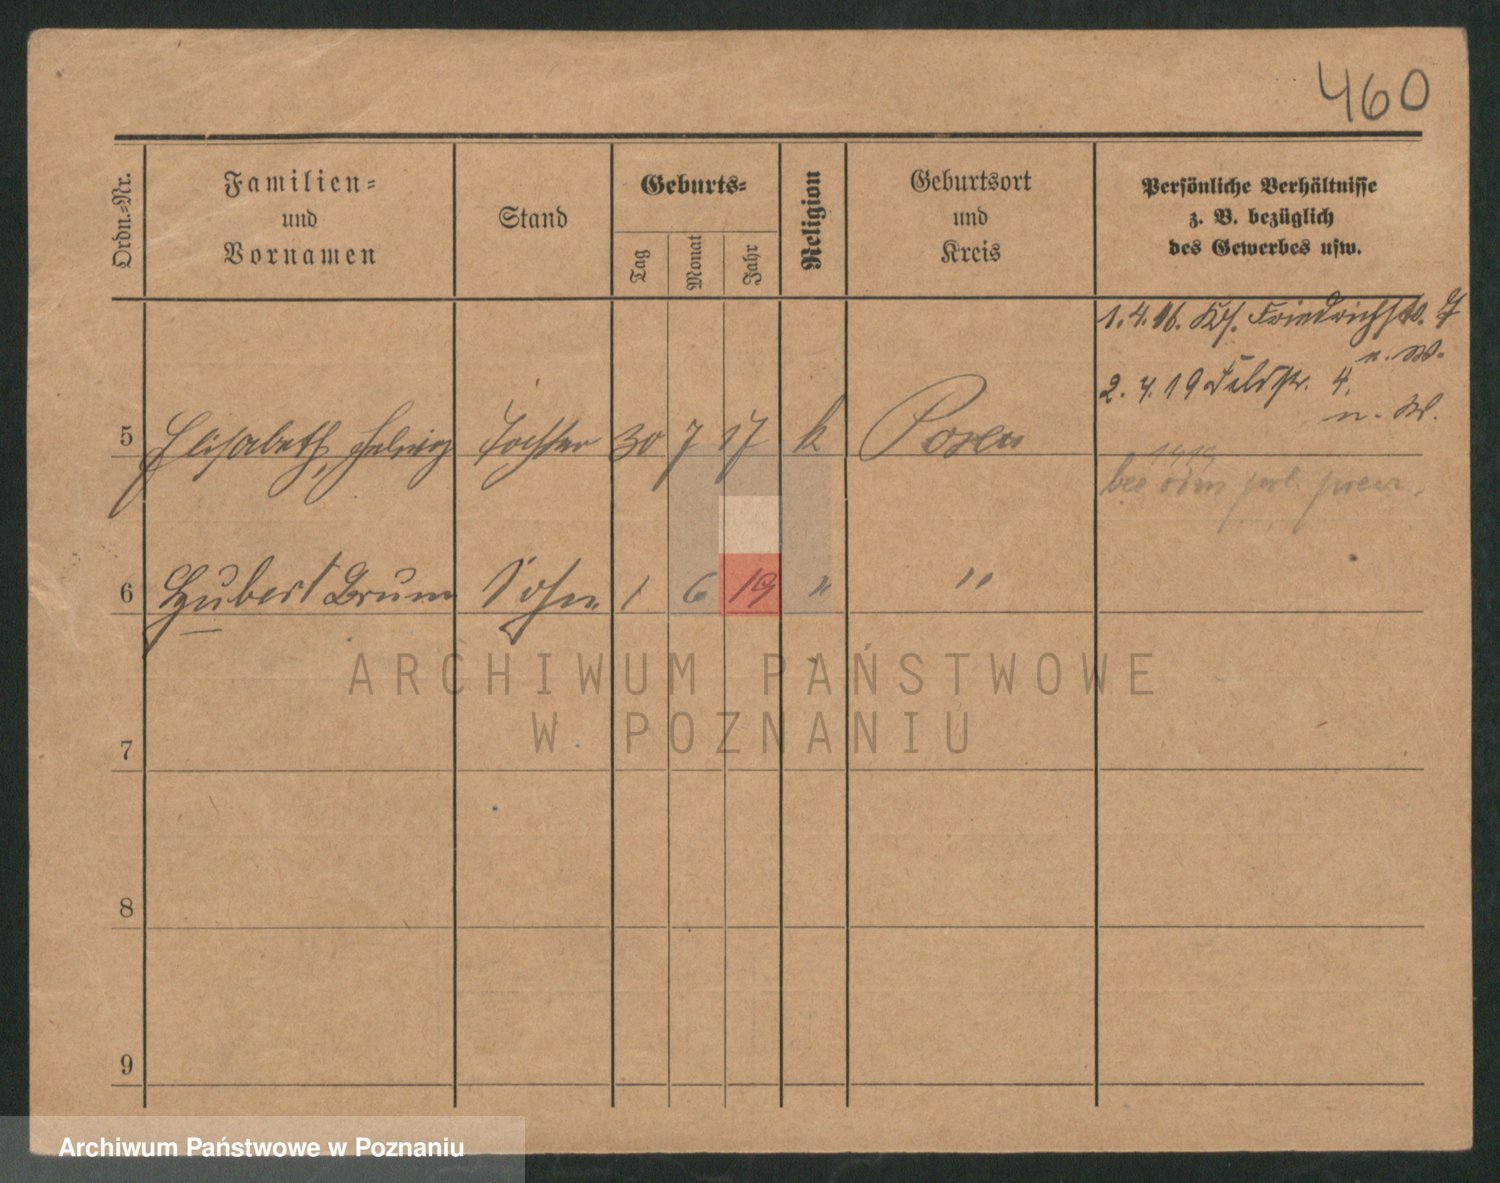 460
Ordn.-Nr.
Familien-
und
Vornamen
Stand
Geburts-
Tag
Monat
Jahr
Religion
Geburtsort
und
Kreis
Persönliche Verhältnisse
z. B. bezüglich
des Gewerbes usw.
1. 4. 16. Friedrichstr.
n. W.
2. 4. 19 Feldstr. 4.
n. W.
5 Elisabeth, Hedwig Tochter 30 7 17 k Posen
1919
6 Hubert Bruno Sohn 1 6 19 " "
ARCHIWUM PAŃSTWOWE
W POZNANIU
7
8
9
Archiwum Państwowe w Poznaniu